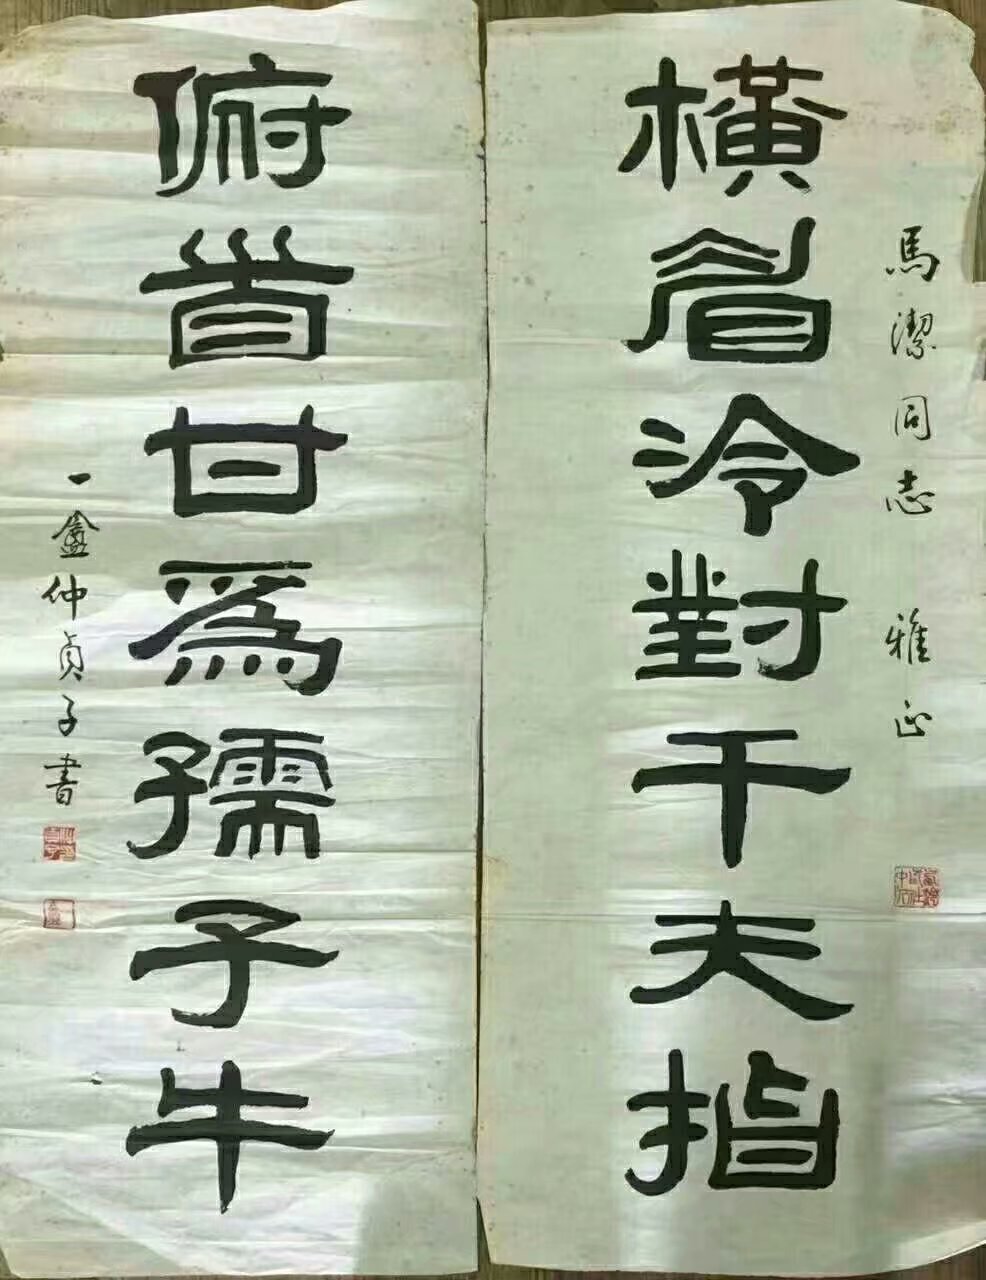 馬潔同志 雅正
橫眉冷對千夫指
俯首甘為孺子牛
一盦仲貞子書